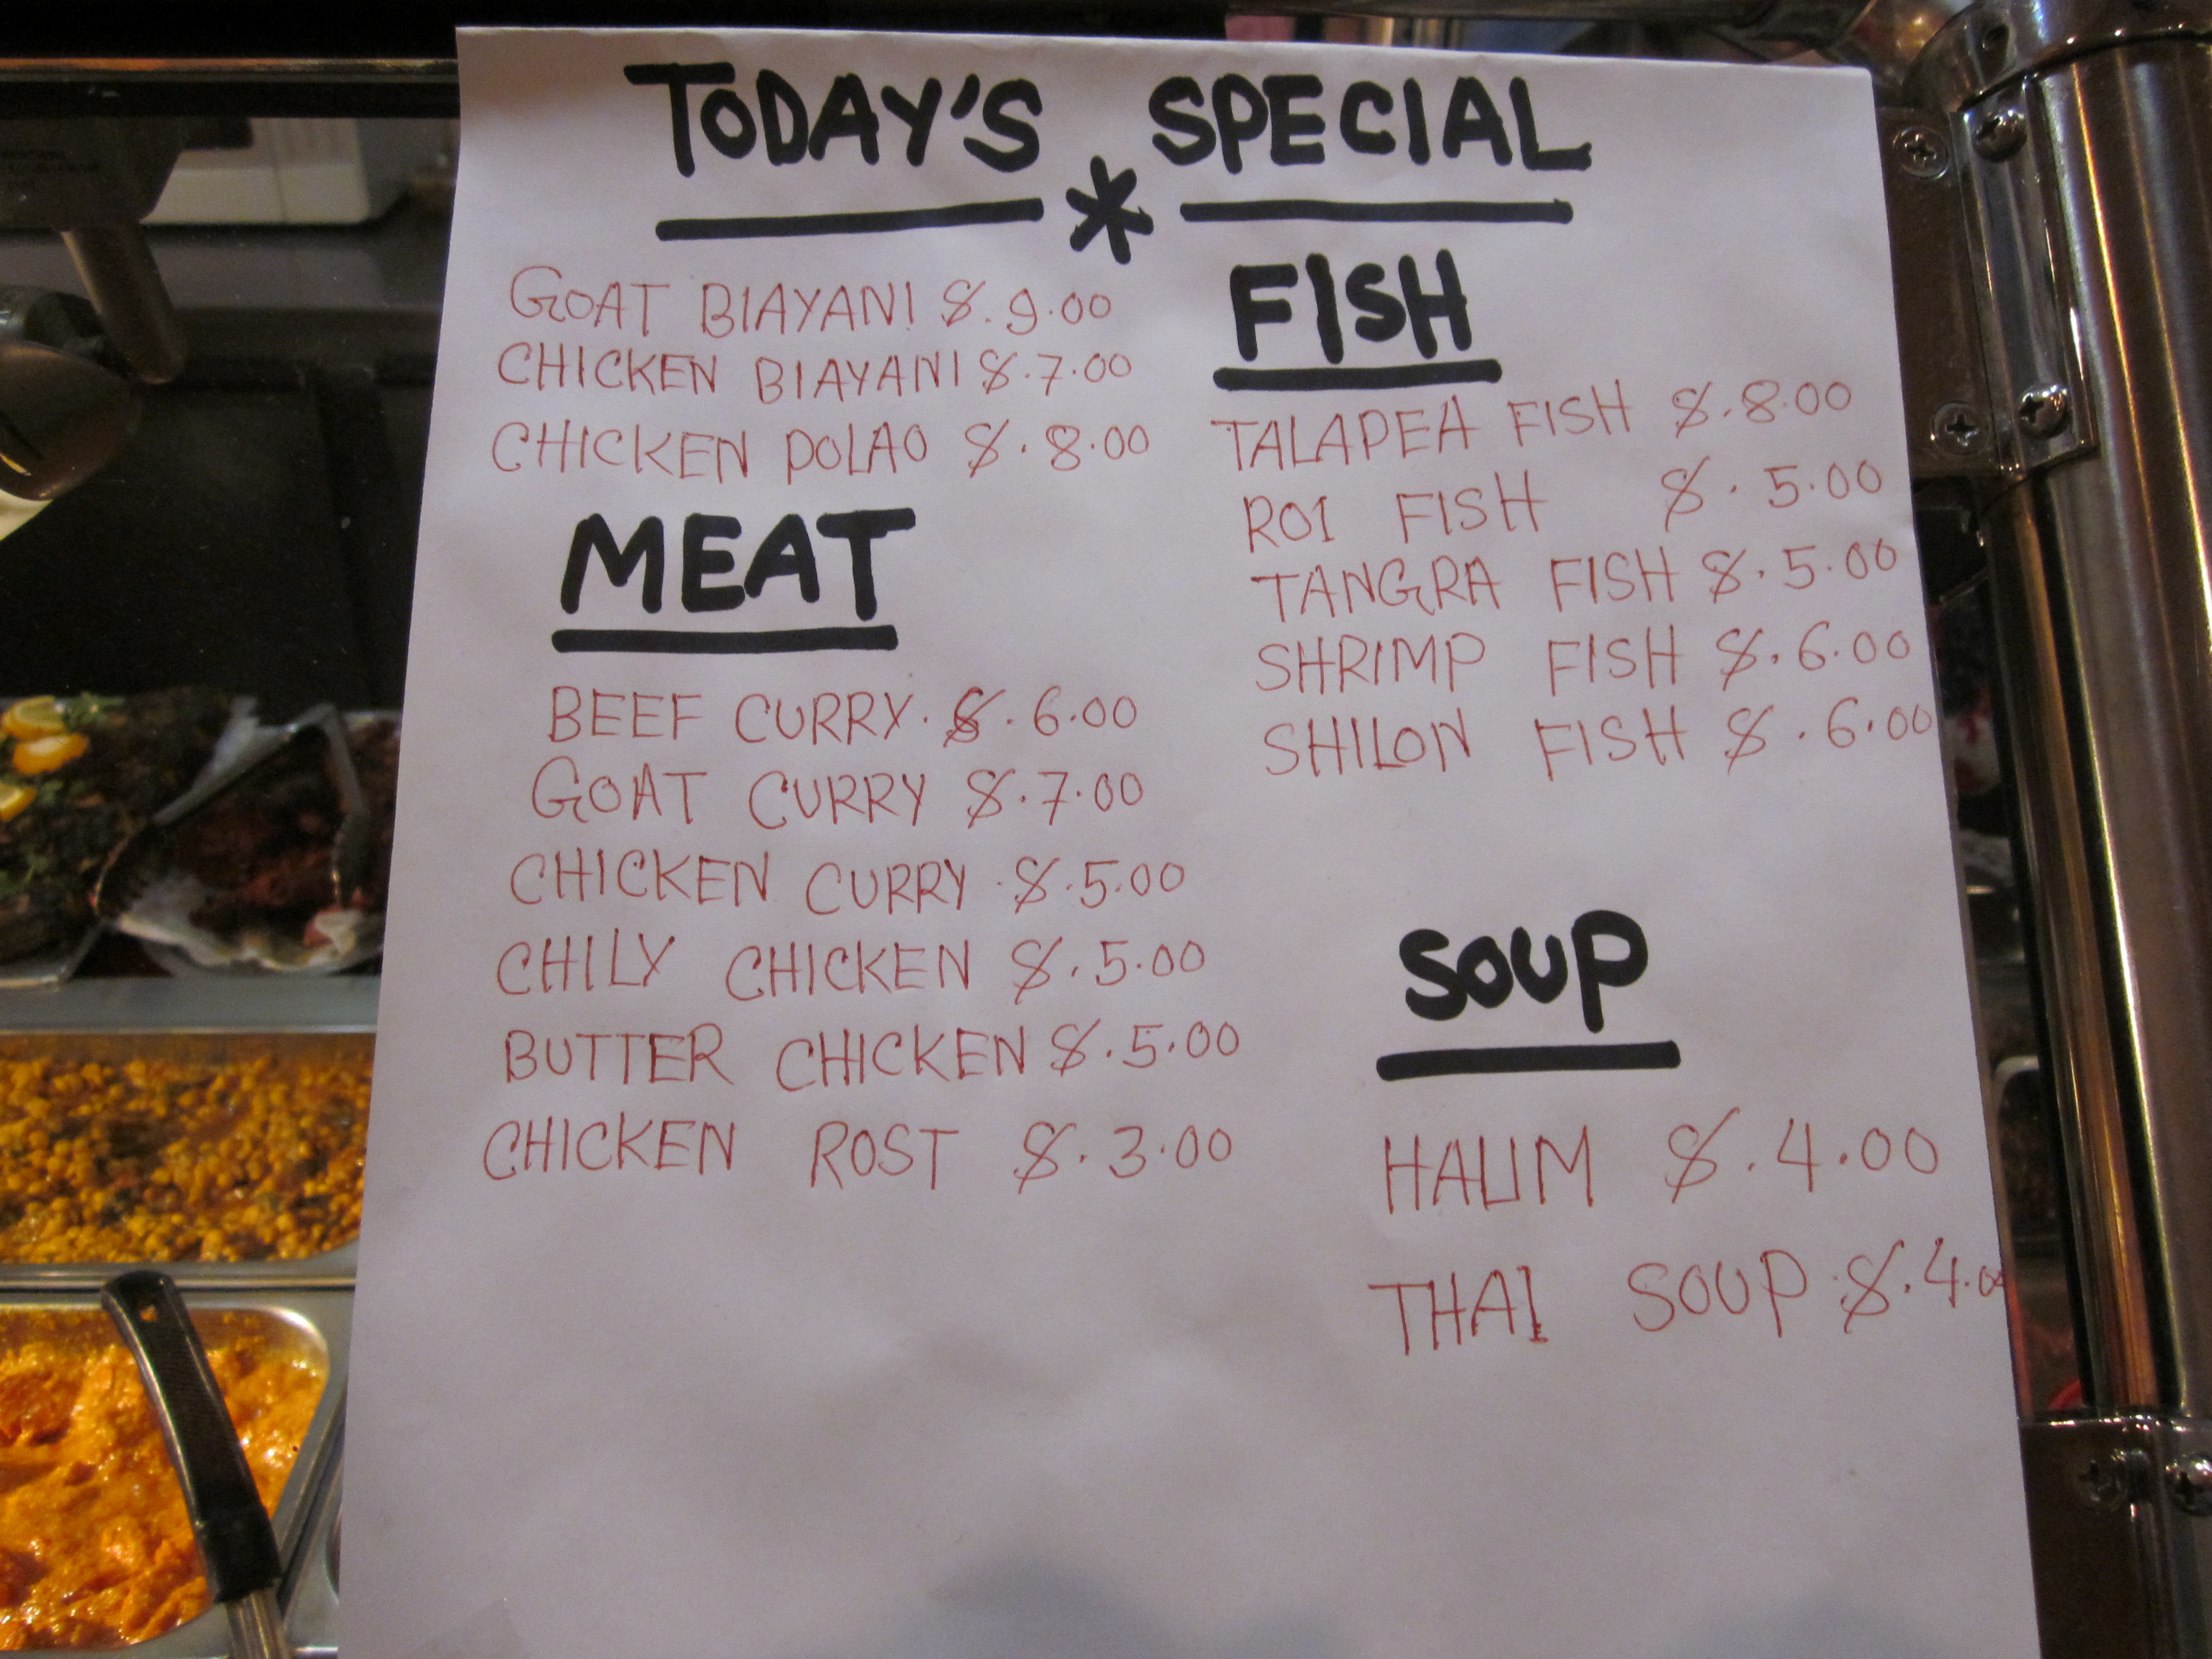 TODAY'S SPECIAL
*
GOAT BIAYANI $.9.00
CHICKEN BIAYANI $.7.00
CHICKEN POLAO $.8.00
MEAT
BEEF CURRY. $.6.00
GOAT CURRY $.7.00
CHICKEN CURRY .$.5.00
CHILY CHICKEN $.5.00
BUTTER CHICKEN $.5.00
CHICKEN ROST $.3.00
FISH
TALAPEA FISH $.8.00
ROI FISH $.5.00
TANGRA FISH $.5.00
SHRIMP FISH $.6.00
SHILON FISH $.6.00
SOUP
HALIM $.4.00
THAI SOUP $.4.00